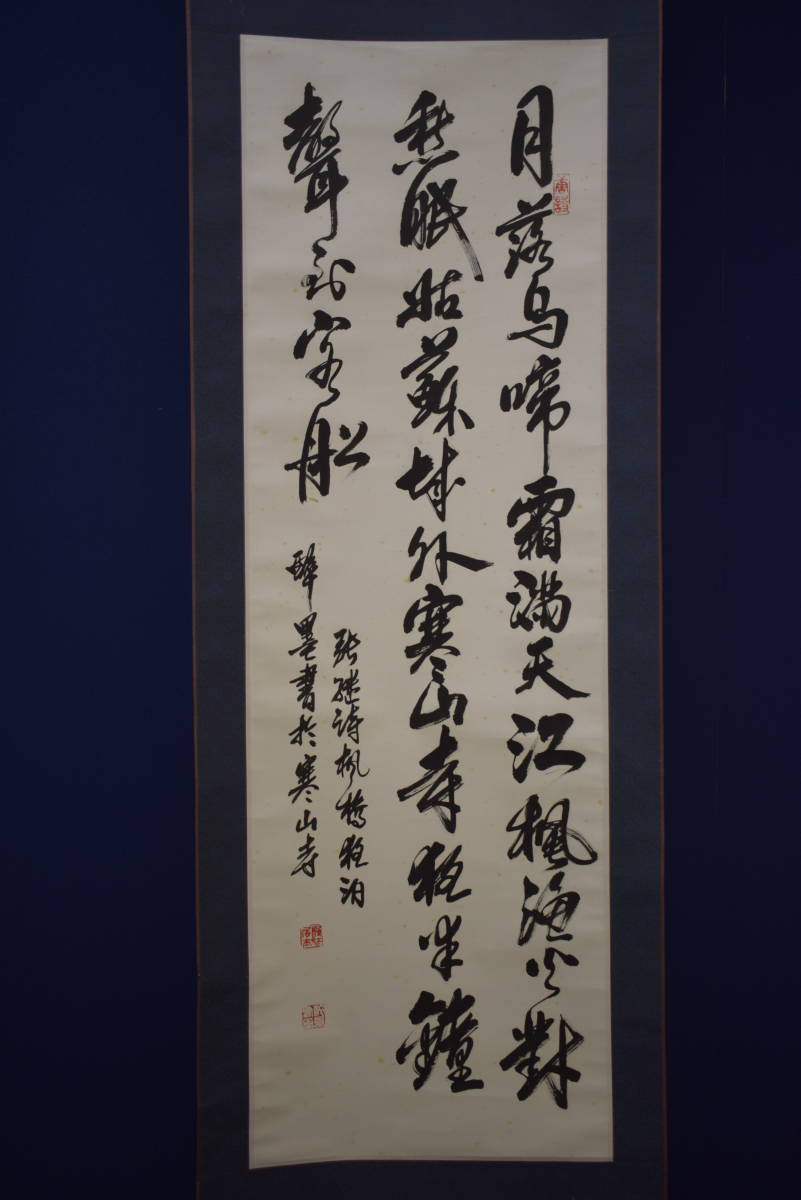 月落烏啼霜満天江楓漁火對
愁眠姑蘇城外寒山寺夜半鐘
聲到客船
張継詩楓橋夜泊
醉墨書於寒山寺